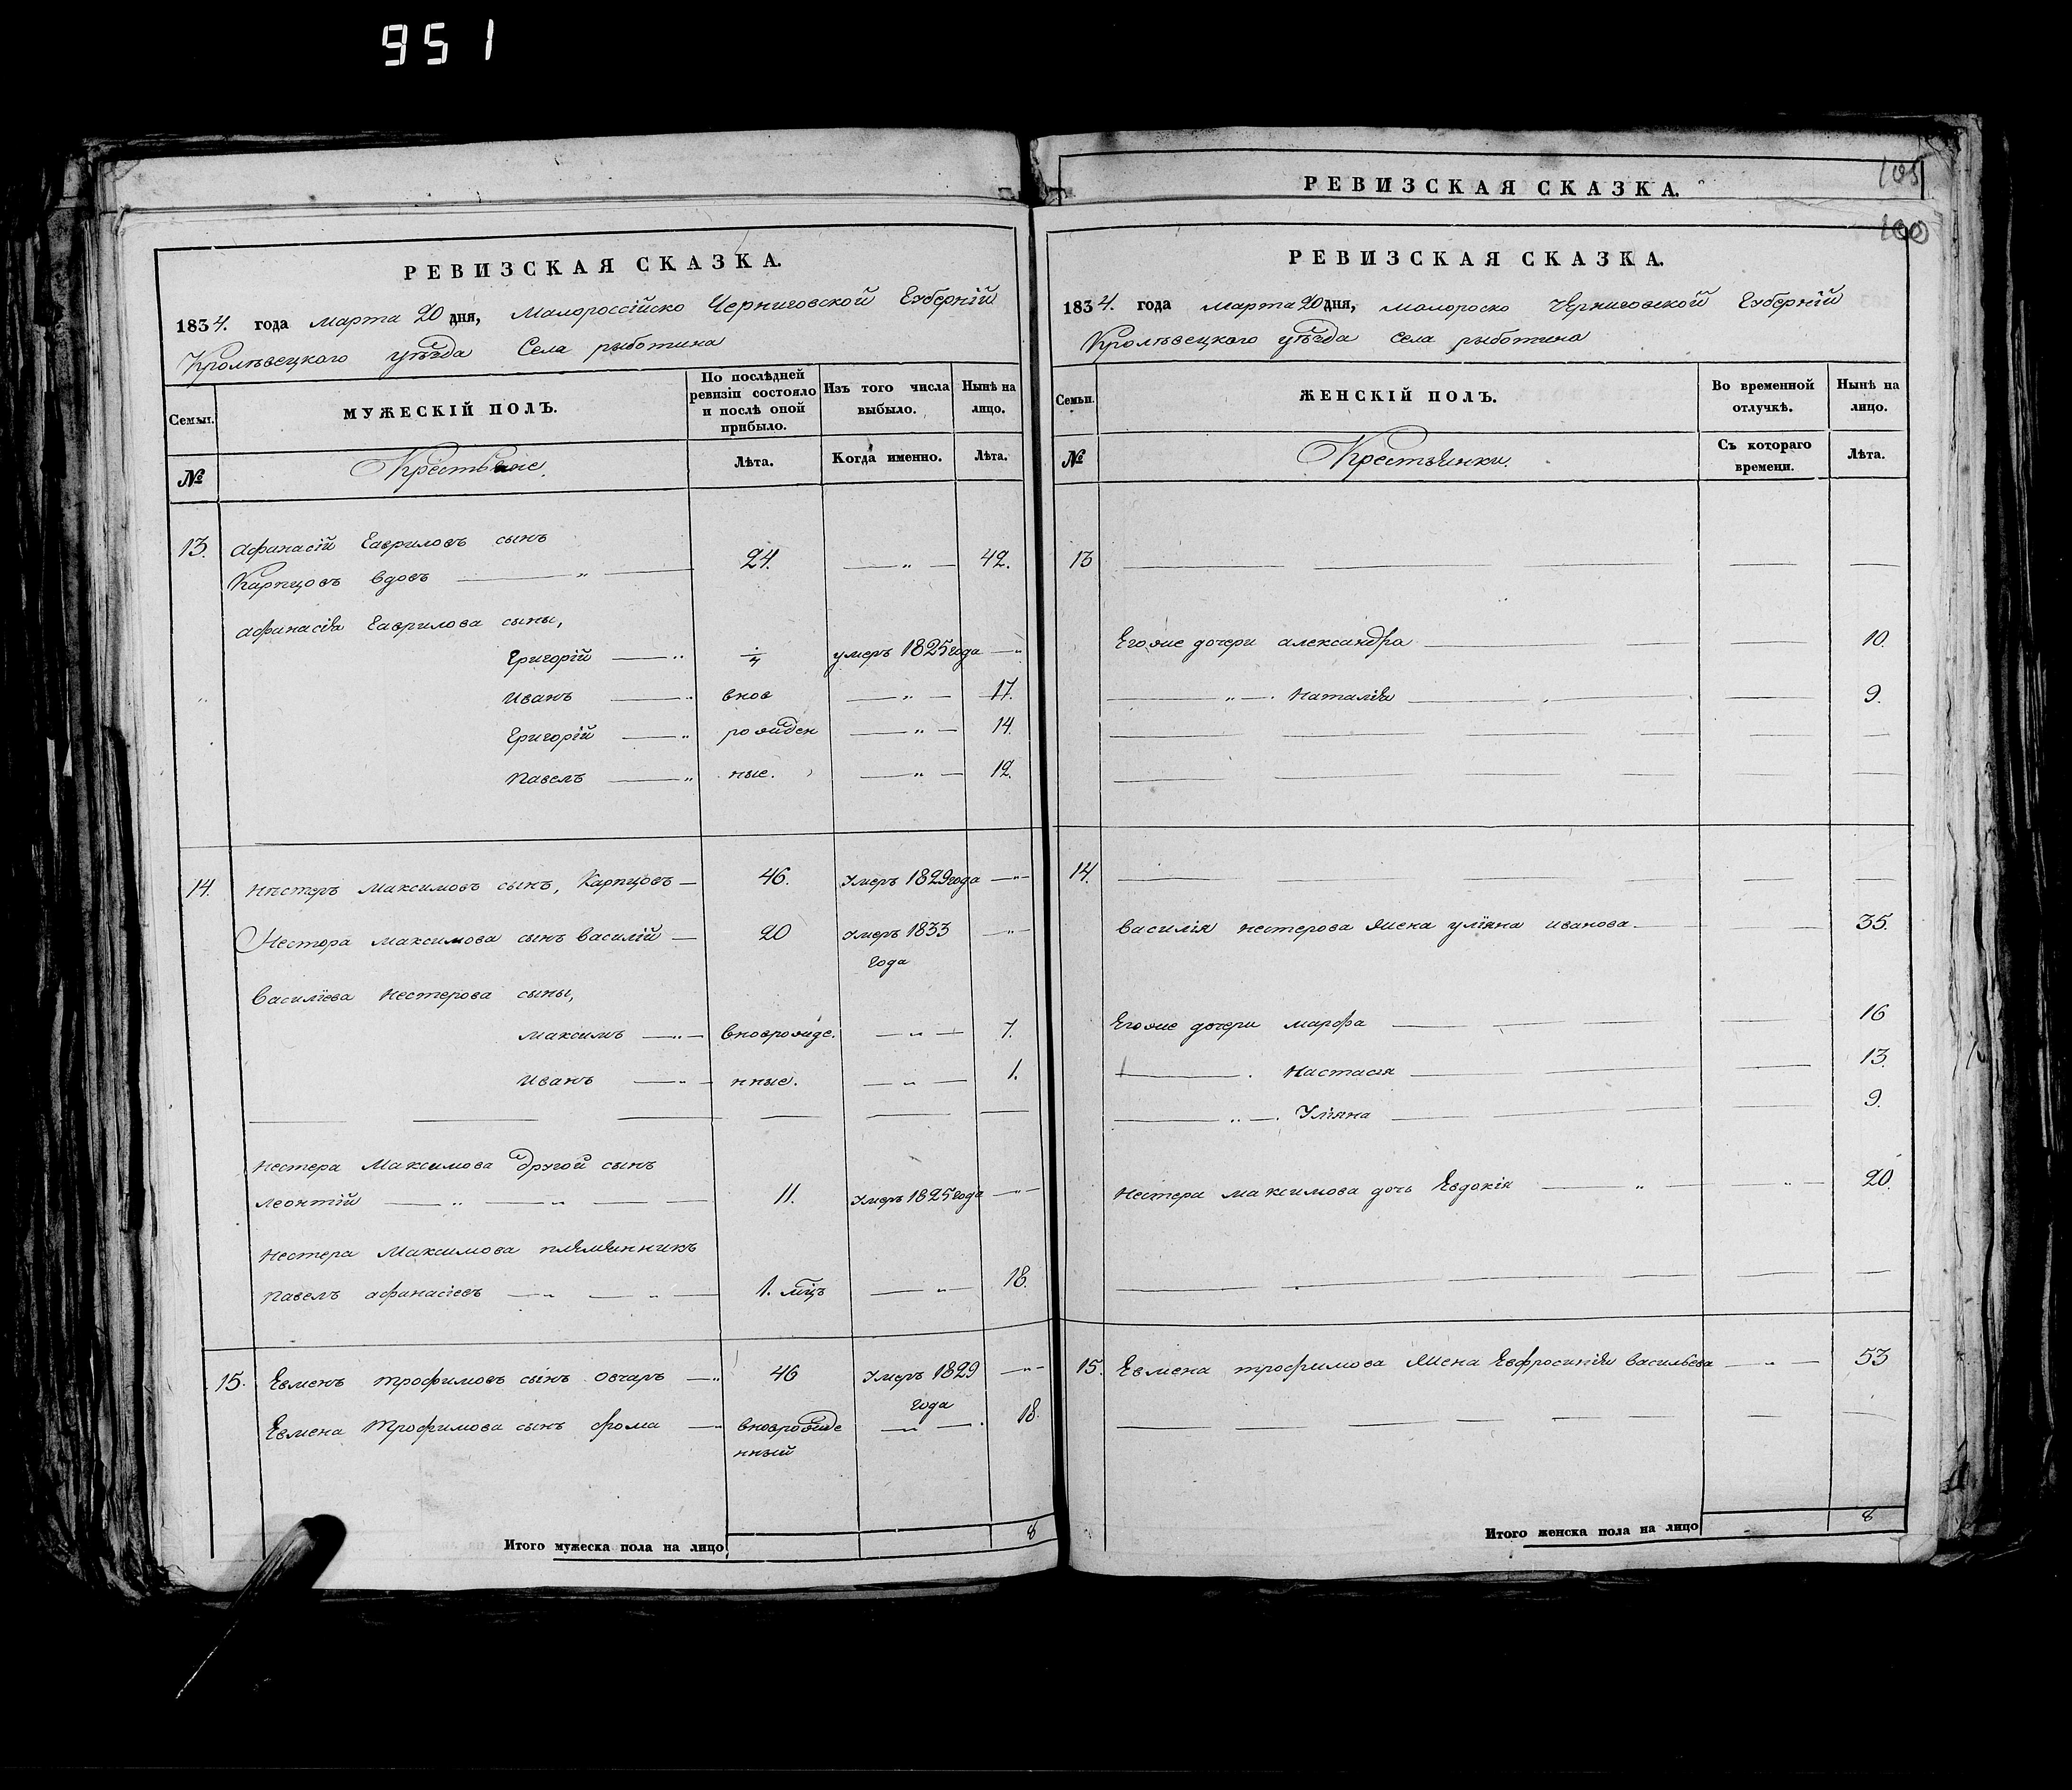 951
РЕВИЗСКАЯ СКАЗКА.
1834. года марта 20 дня, Малороссійско Черниговской Губерніи
Кролѣвецкого уѣзда Села рыботина
Семьи.
МУЖЕСКІЙ ПОЛЪ.
По послѣдней ревизіи состояло и послѣ оной прибыло.
Изъ того числа выбыло.
Нынѣ на лицо.
№
Крестьяне.
Лѣта.
Когда именно.
Лѣта.
13. Афанасій Гавриловъ сынъ
Карпцовъ вдовъ — „ — 24. — „ — 42.
афанасія Гаврилова сыны,
Григорій — „ умеръ 1825 года — „
Иванъ — „ внов — „ — 17.
Григорій — „ рожден — „ — 14.
Павелъ — „ ные. — „ — 12.
14. Нѣстеръ Максимовъ сынъ, Карпцовъ — 46. Умеръ 1829 года — „ —
Нестора максимова сынъ василій — 20 Умеръ 1833 — „ —
года
Василіева Нестерова сыны,
Максимъ — „ — вноврожде. — „ — 7.
Иванъ — „ — нные. — „ — 1.
Нестера Максимова другой сынъ
Леонтій — „ — „ — 11. Умеръ 1825 года — „ —
Нестера Максимова племянникъ
Павелъ афанасіевъ — „ — „ — 1. мцъ — „ — 18.
15. Евменъ трофимовъ сынъ овчаръ — „ 46 Умеръ 1829 — „ —
года
Евмена Трофимова сынъ фома — вноврожде — „ — 18.
нный
Итого мужеска пола на лицо 8
РЕВИЗСКАЯ СКАЗКА.
105
100
РЕВИЗСКАЯ СКАЗКА.
1834. года марта 20 дня, малороско Черниговской Губерніи
Кролѣвецкого уѣзда Села рыботина
Семьи.
ЖЕНСКІЙ ПОЛЪ.
Во временной отлучкѣ.
Нынѣ на лицо.
№
Крестьянки.
Съ котораго времени.
Лѣта.
13
Егоже дочери александра — 10.
— „ — Наталія — 9.
14.
Василія нестерова жена уліяна иванова — 35.
Егоже дочери марфа — 16
— Настасія — 13.
— „ — Уліяна — 9.
Нестера максимова дочь Евдокія — „ — „ — 20.
15. Евмена трофимова жена Евфросинія васильева — „ — 53
Итого женска пола на лицо 8